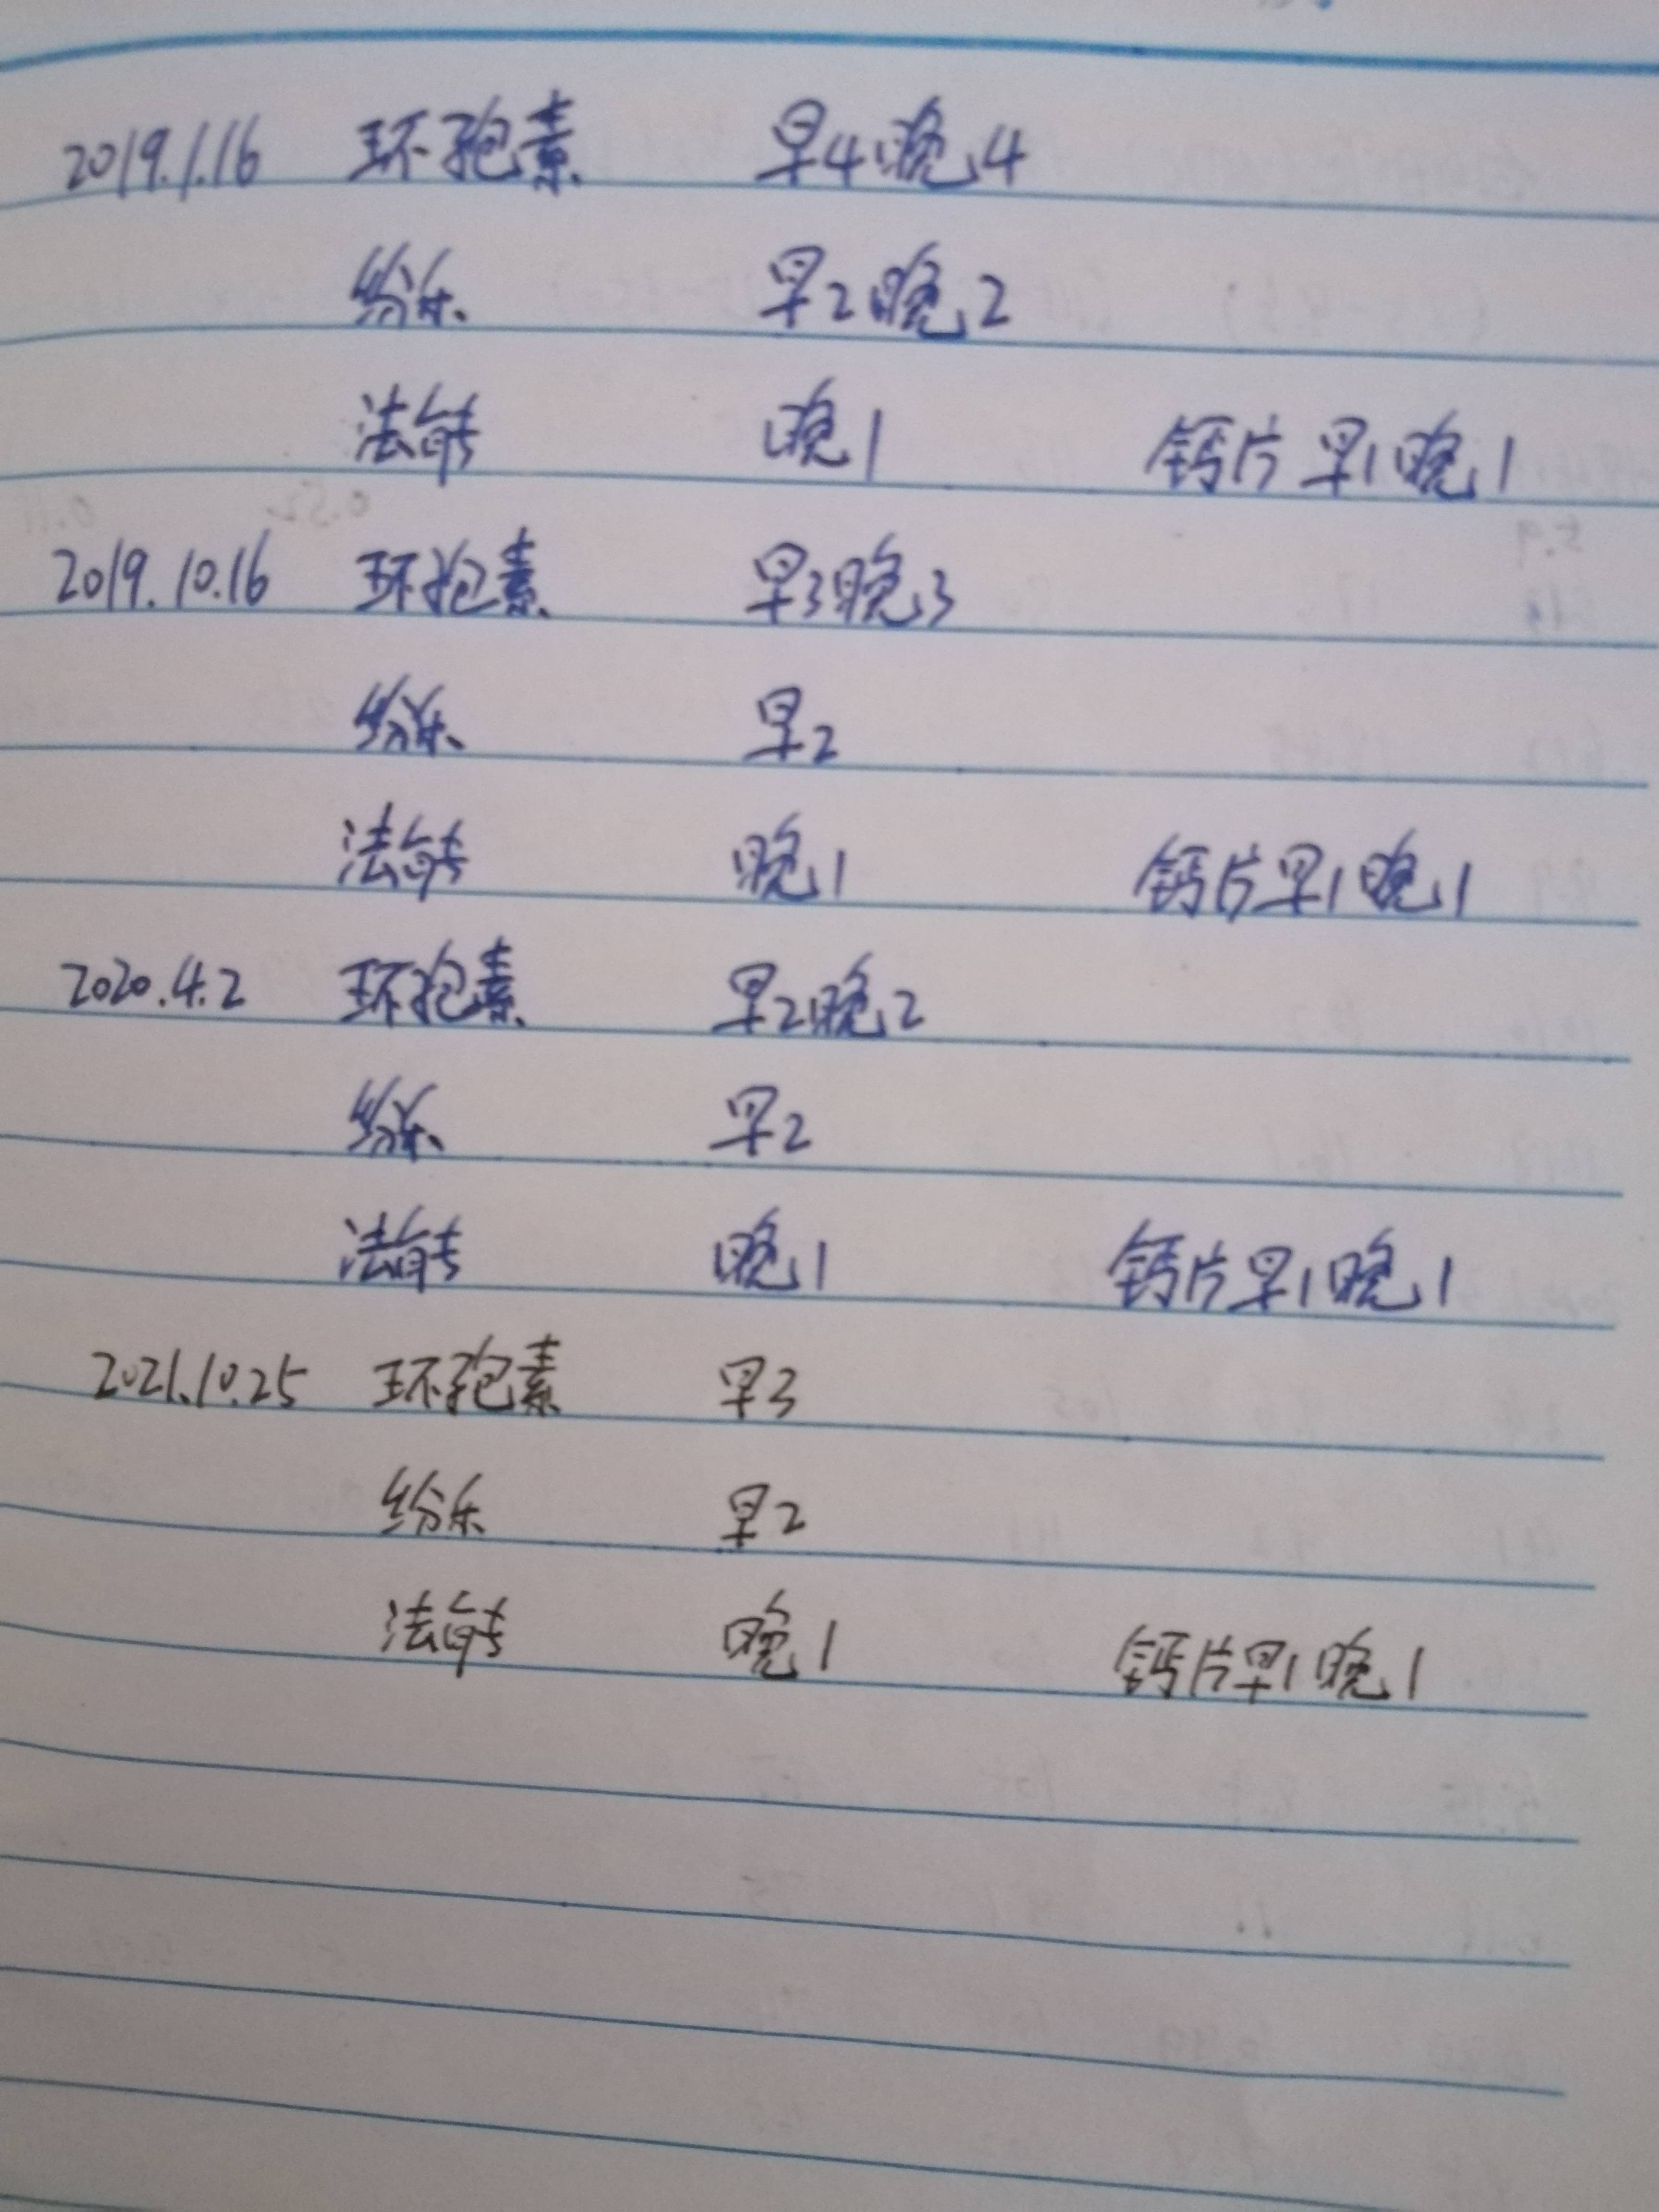 2019.1.16 环孢素 早4晚4
纷乐 早2晚2
法能 晚1 钙片 早1晚1
2019.10.16 环孢素 早3晚3
纷乐 早2
法能 晚1 钙片早1晚1
2020.4.2 环孢素 早2晚2
纷乐 早2
法能 晚1 钙片早1晚1
2021.10.25 环孢素 早3
纷乐 早2
法能 晚1 钙片早1晚1